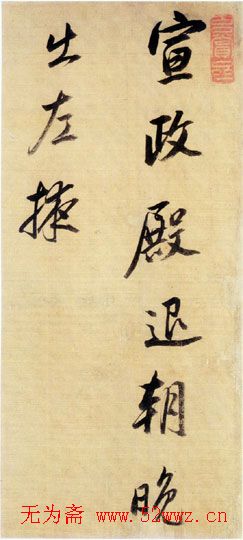 宣政殿退朝晚
出左掖
无为斋 www.52wwz.cn